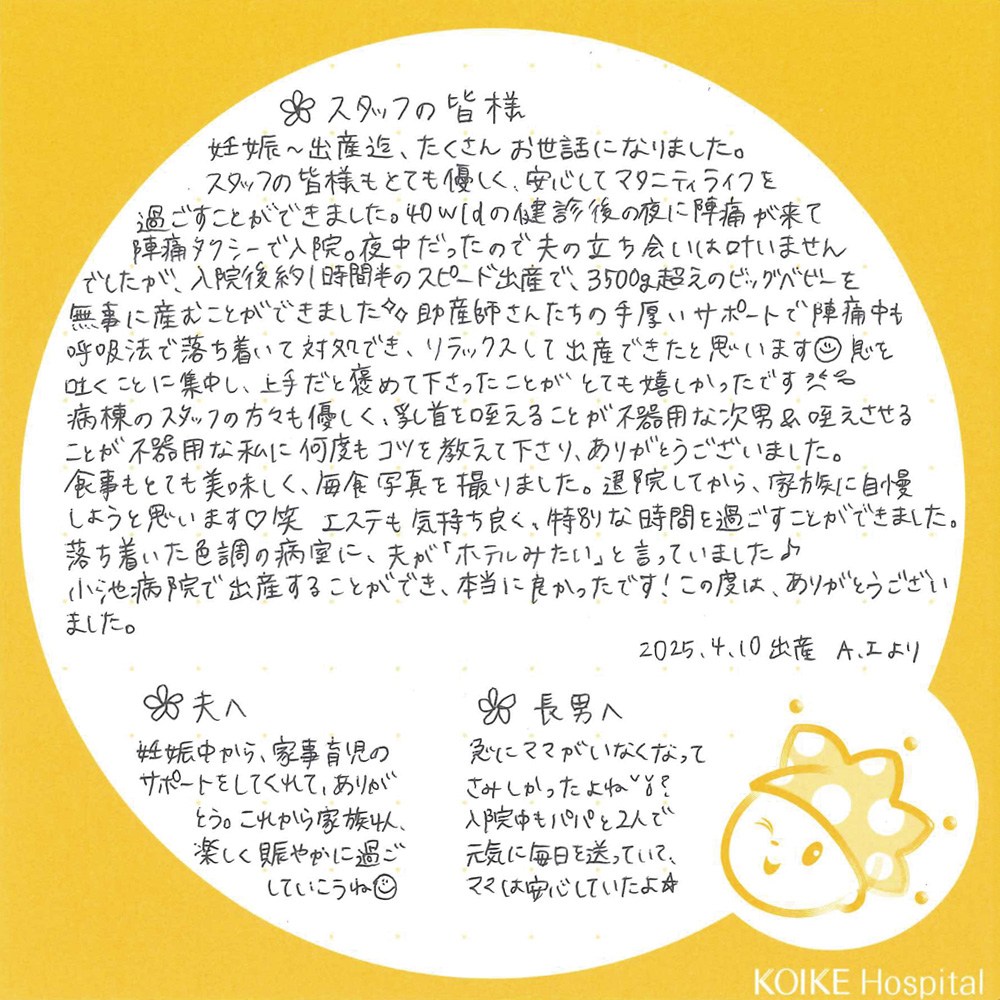 スタッフの皆様
妊娠~出産迄、たくさんお世話になりました。
スタッフの皆様もとても優しく、安心してマタニティライフを
過ごすことができました。40w1dの健診後の夜に陣痛が来て
陣痛タクシーで入院。夜中だったので夫の立ち会いは叶いません
でしたが、入院後約1時間半のスピード出産で、3500g超えのビッグベビーを
無事に産むことができました 助産師さんたちの手厚いサポートで陣痛中も
呼吸法で落ち着いて対処でき、リラックスして出産できたと思います☺息を
吐くことに集中し、上手だと褒めて下さったことがとても嬉しかったです
病棟のスタッフの方々も優しく、乳首を咥えることが不器用な次男&咥えさせる
ことが不器用な私に何度もコツを教えて下さり、ありがとうございました。
食事もとても美味しく、毎食写真を撮りました。退院してから、家族に自慢
しようと思います♡笑 エステも気持ち良く、特別な時間を過ごすことができました。
落ち着いた色調の病室に、夫が「ホテルみたい」と言っていました♪
小池病院で出産することができ、本当に良かったです!この度は、ありがとうござい
ました。
2025.4.10出産 A.Iより
夫へ
妊娠中から、家事育児の
サポートをしてくれて、ありが
とう。これから家族4人、
楽しく賑やかに過ご
していこうね☺
長男へ
急にママがいなくなって
さみしかったよね
入院中もパパと2人で
元気に毎日を送っていて、
ママは安心していたよ☆
KOIKE Hospital